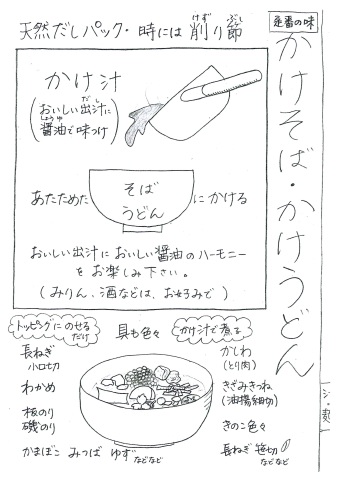 定番の味
かけそば・かけうどん
天然だしパック・時には削り節
けず
ぶし
かけ汁
(おいしい出汁に
だし
醤油で味つけ)
しょうゆ
あたためた
そば
うどん
にかける
おいしい出汁においしい醤油のハーモニー
をお楽しみ下さい。
(みりん、酒などは、お好みで)
トッピングにのせる
だけ
具も色々
かけ汁で煮る
長ねぎ
小口切
わかめ
板のり
磯のり
かまぼこ みつば ゆず などなど
かしわ
(とり肉)
きざみきつね
(油揚細切)
きのこ色々
長ねぎ 笹切
などなど